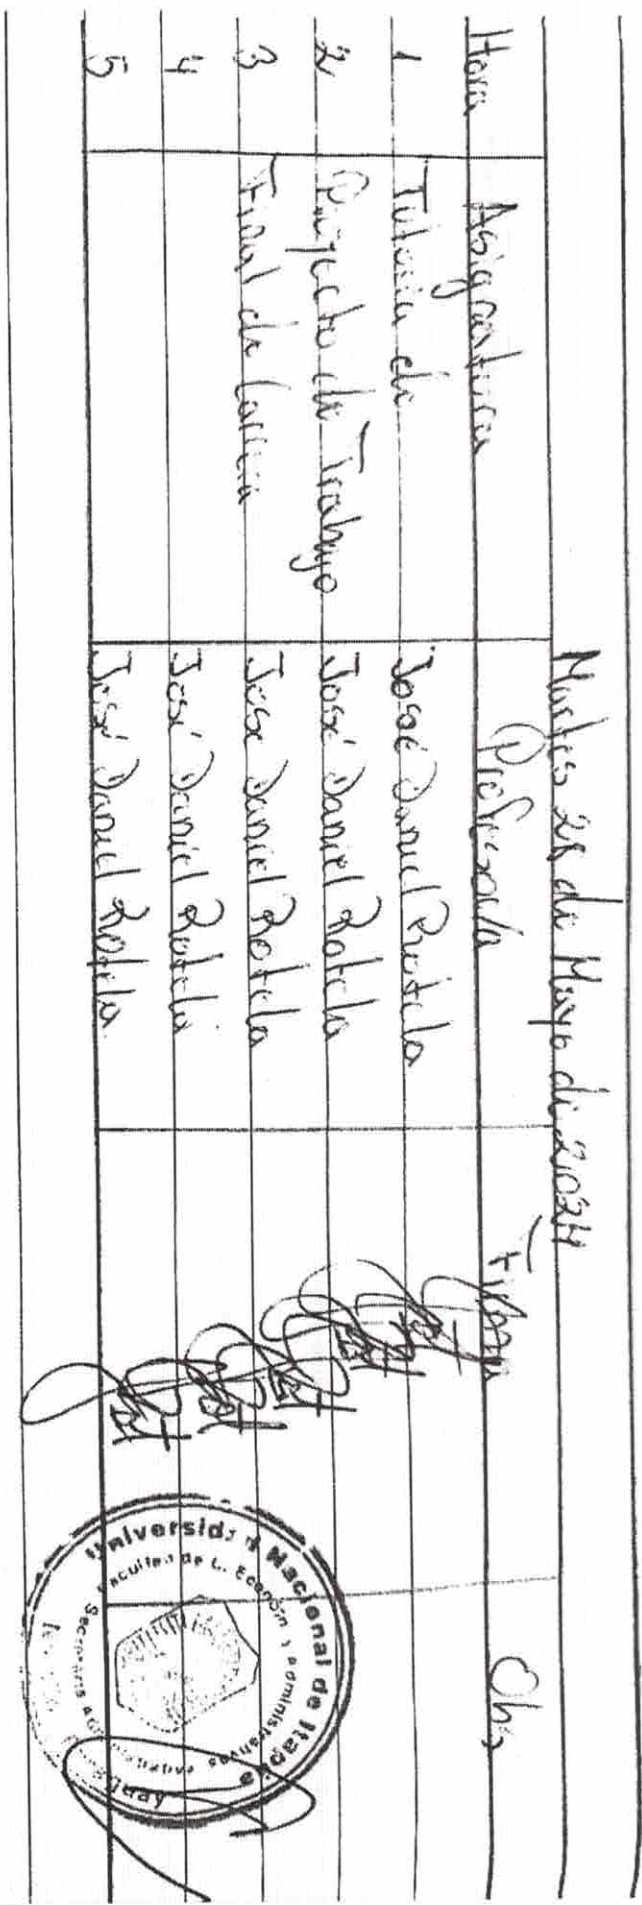 Martes 28 de Mayo de 2.024
Hora Asignatura Profesor/a Firma Obs
1 Tutoria de José Daniel Rotela
2 Proyecto de Trabajo José Daniel Rotela
3 Final de Carrera José Daniel Rotela
4 José Daniel Rotela
5 José Daniel Rotela
Universidad Nacional de Itapúa
Facultad de C. Económ y Administrativas